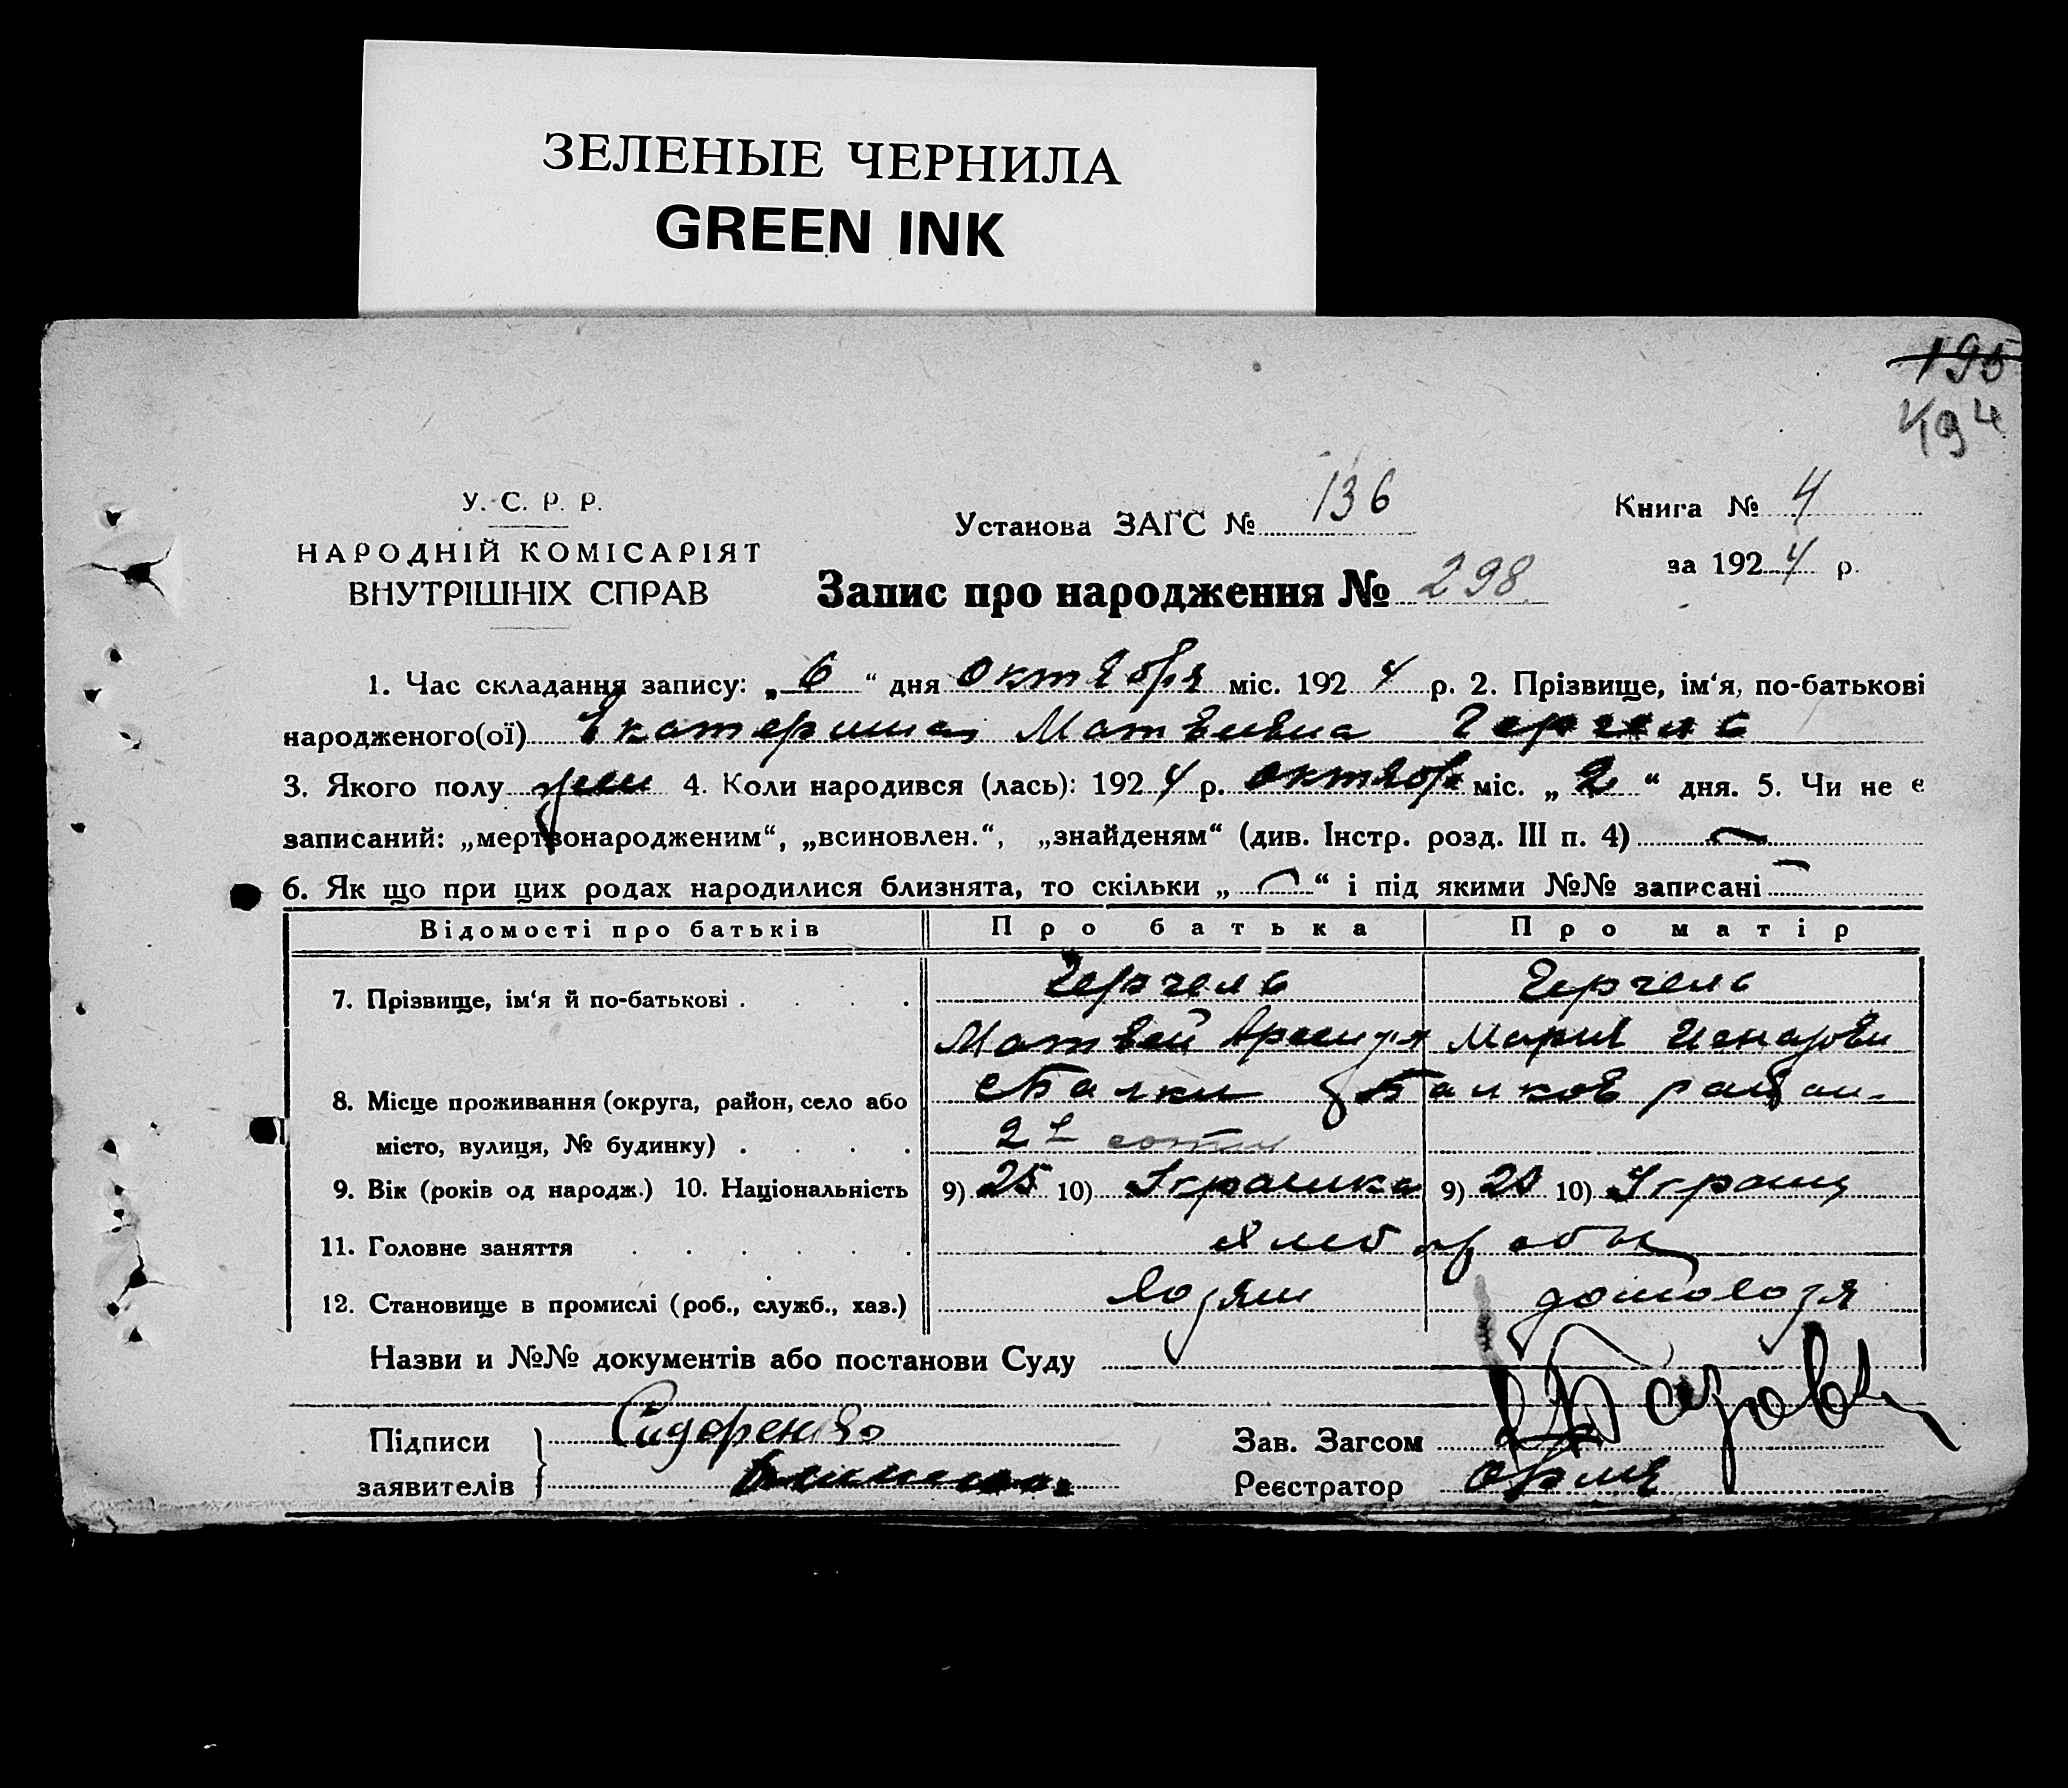 ЗЕЛЕНЫЕ ЧЕРНИЛА
GREEN INK
195
194
У. С. Р. Р.
НАРОДНІЙ КОМІСАРІЯТ
ВНУТРІШНІХ СПРАВ
Установа ЗАГС № 136
Книга № 4
за 1924 р.
Запис про народження № 298
1. Час складання запису: „6“ дня октября міс. 1924 р. 2. Прізвище, ім‘я, по-батькові
народженого(ої) Екатерина Матвеевна
3. Якого полу жен 4. Коли народився (лась): 1924 р. октября міс. „2“ дня. 5. Чи не є
записаний: „мертвонародженим“, „всиновлен.“, „знайденям“ (див. Інстр. розд. III п. 4)
6. Як що при цих родах народилися близнята, то скільки „ “ і під якими №№ записані
Відомості про батьків Про батька Про матір
7. Прізвище, ім‘я й по-батькові
Матвей Мария
8. Місце проживання (округа, район, село або с Балки Балков район
місто, вулиця, № будинку) 2 сотня
9. Вік (років од народж.) 10. Національність 9) 25 10) 9) 20 10)
11. Головне заняття хлебороб
12. Становище в промислі (роб., служб., хаз.) хозяин домохозя
Назви и №№ документів або постанови Суду
Підписи Сидоренко
заявителів
Зав. Загсом
Реєстратор